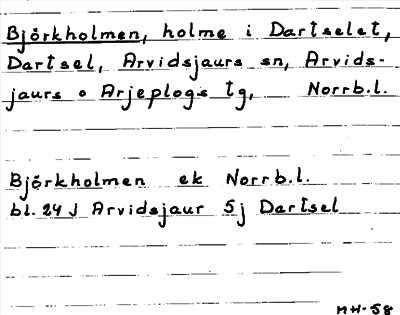 Björkholmen, holme i Dartselet,
Dartsel, Arvidsjaurs sn, Arvids-
jaurs o Arjeplogs tg, Norrb.l.
Björkholmen ek Norrb.l.
bl. 24 J Arvidsjaur 5j Dartsel
MH-58